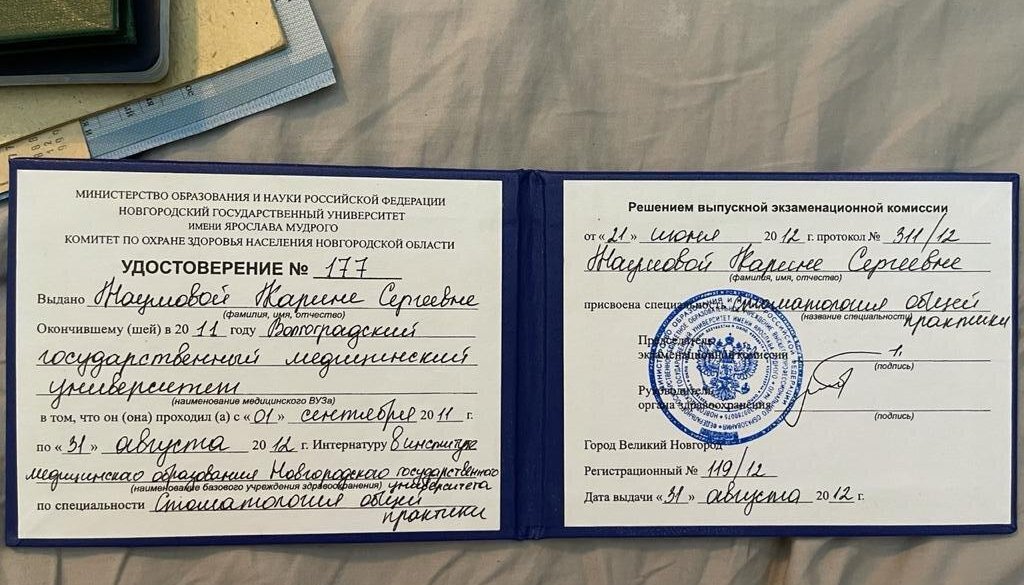 МИНИСТЕРСТВО ОБРАЗОВАНИЯ И НАУКИ РОССИЙСКОЙ ФЕДЕРАЦИИ
НОВГОРОДСКИЙ ГОСУДАРСТВЕННЫЙ УНИВЕРСИТЕТ
ИМЕНИ ЯРОСЛАВА МУДРОГО
КОМИТЕТ ПО ОХРАНЕ ЗДОРОВЬЯ НАСЕЛЕНИЯ НОВГОРОДСКОЙ ОБЛАСТИ
УДОСТОВЕРЕНИЕ № 177
Выдано Наумовой Карине Сергеевне
(фамилия, имя, отчество)
Окончившему (шей) в 20 11 году Волгоградский
государственный медицинский
университет
(наименование медицинского ВУЗа)
в том, что он (она) проходил (а) с «01» сентября 2011 г.
по «31» августа 2012 г. Интернатуру В институте
медицинского образования Новгородского государственного
(наименование базового учреждения здравоохранения) университета
по специальности Стоматология общей
практики
Решением выпускной экзаменационной комиссии
от «21» июня 2012 г. протокол № 311/12
Наумовой Карине Сергеевне
(фамилия, имя, отчество)
присвоена специальность Стоматология общей
(название специальности) практики
Председатель
экзаменационной комиссии
(подпись)
Руководитель
органа здравоохранения
(подпись)
Город Великий Новгород
Регистрационный № 119/12
Дата выдачи «31» августа 2012 г.